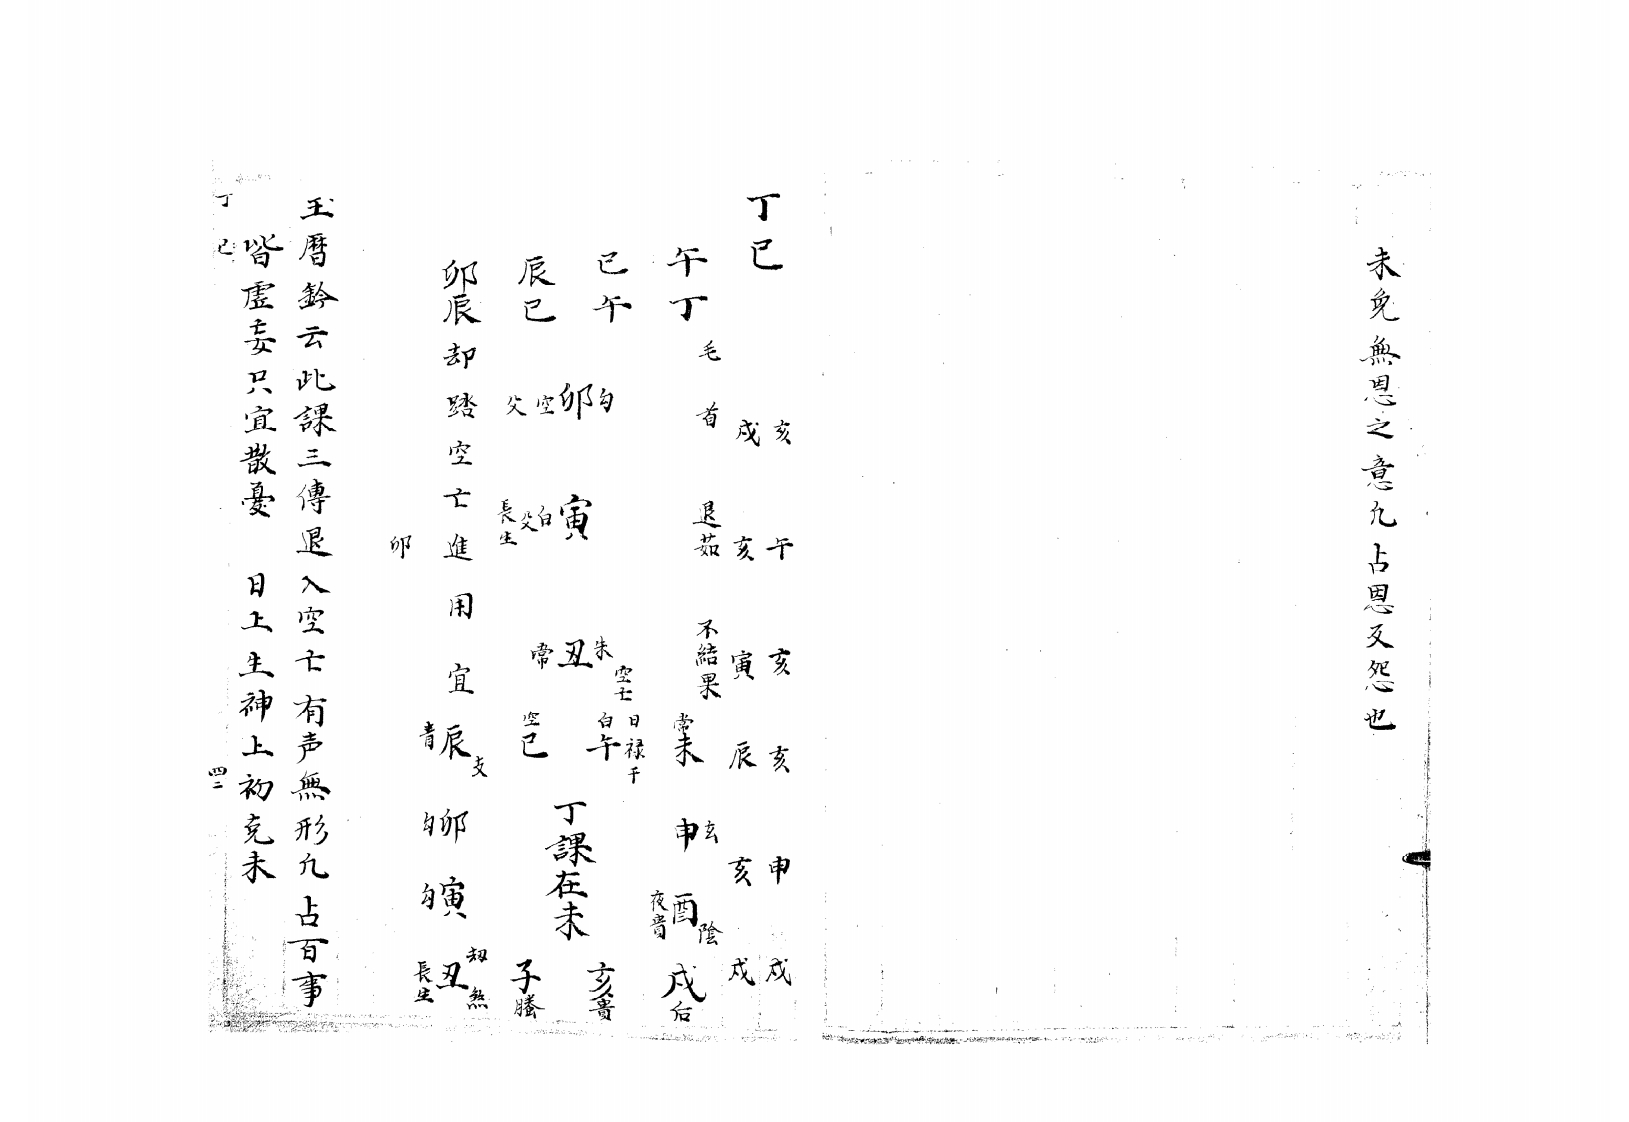 未免無恩之意凢占恩反怨也
丁巳
亥 午 亥 亥 申 戍
戍 亥 寅 辰 亥 戍
午丁
毛首 退茹 不結果
巳午
辰巳
卯辰
勾卯空父
寅白父長生
朱丑常
空亡
常未
玄申
酉陰夜貴
戍后
日禄干
白午
空巳
丁課在未
亥貴
子螣
却踏空亡進用宜
辰青支
卯勾
寅勾
丑刼煞長生
卯
玉曆鈐云此課三傳退入空亡有声無形凢占百事
皆虛妄只宜散憂 日上生神上初克未
丁巳
四二